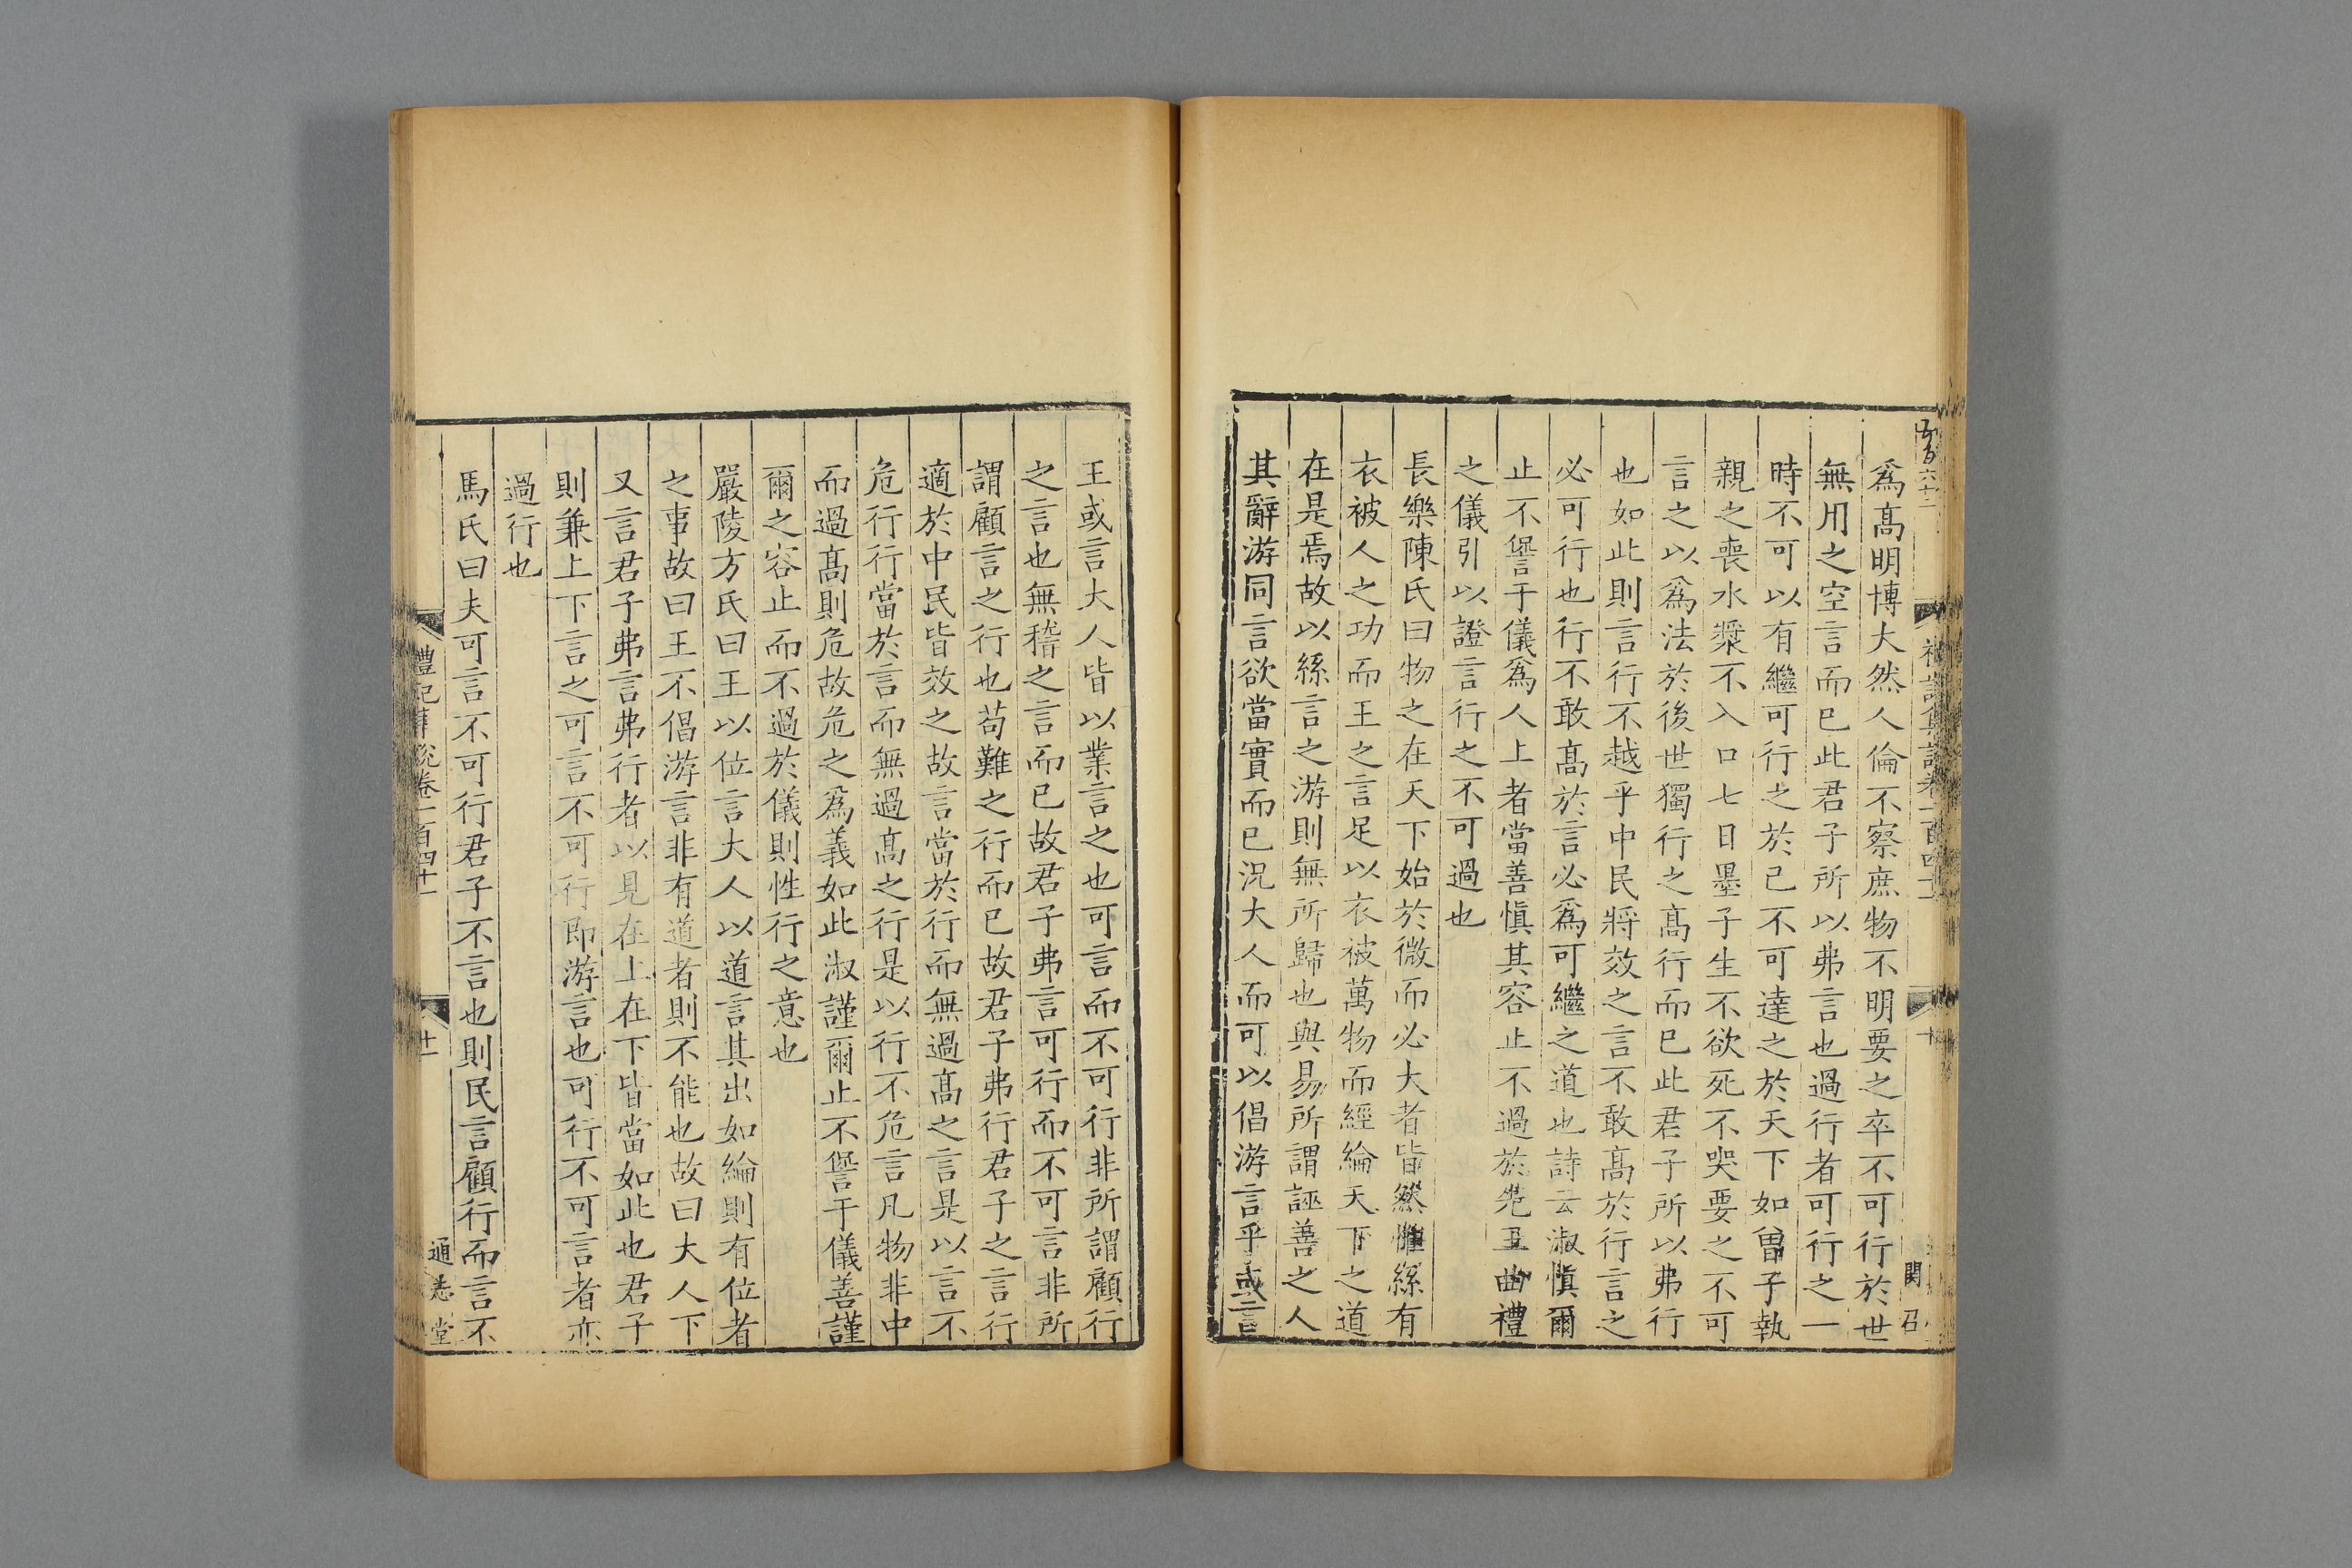 爲高明博大然人倫不察庶物不明要之卒不可行於世
無用之空言而已此君子所以弗言也過行者可行之一
時不可以有繼可行之於己不可達之於天下如曾子執
親之喪水漿不入口七日墨子生不欲死不哭要之不可
言之以爲法於後世獨行之高行而已此君子所以弗行
也如此則言行不越乎中民將效之言不敢高於行言之
必可行也行不敢高於言必爲可繼之道也詩云淑慎爾
止不諐于儀爲人上者當善慎其容止不過於先王曲禮
之儀引以證言行之不可過也
長樂陳氏曰物之在天下始於微而必大者皆然惟絲有
衣被人之功而王之言足以衣被萬物而經綸天下之道
在是焉故以絲言之游則無所歸也與易所謂誣善之人
其辭游同言欲當實而已況大人而可以倡游言乎或言
王或言大人皆以業言之也可言而不可行非所謂顧行
之言也無稽之言而已故君子弗言可行而不可言非所
謂顧言之行也苟難之行而已故君子弗行君子之言行
適於中民皆效之故言當於行而無過高之言是以言不
危行行當於言而無過高之行是以行不危言凡物非中
而過高則危故危之爲義如此淑謹爾止不諐于儀善謹
爾之容止而不過於儀則性行之意也
嚴陵方氏曰王以位言大人以道言其出如綸則有位者
之事故曰王不倡游言非有道者則不能也故曰大人下
又言君子弗言弗行者以見在上在下皆當如此也君子
則兼上下言之可言不可行即游言也可行不可言者亦
過行也
馬氏曰夫可言不可行君子不言也則民言顧行而言不
禮記集說卷一百四十一
廿一
通志堂